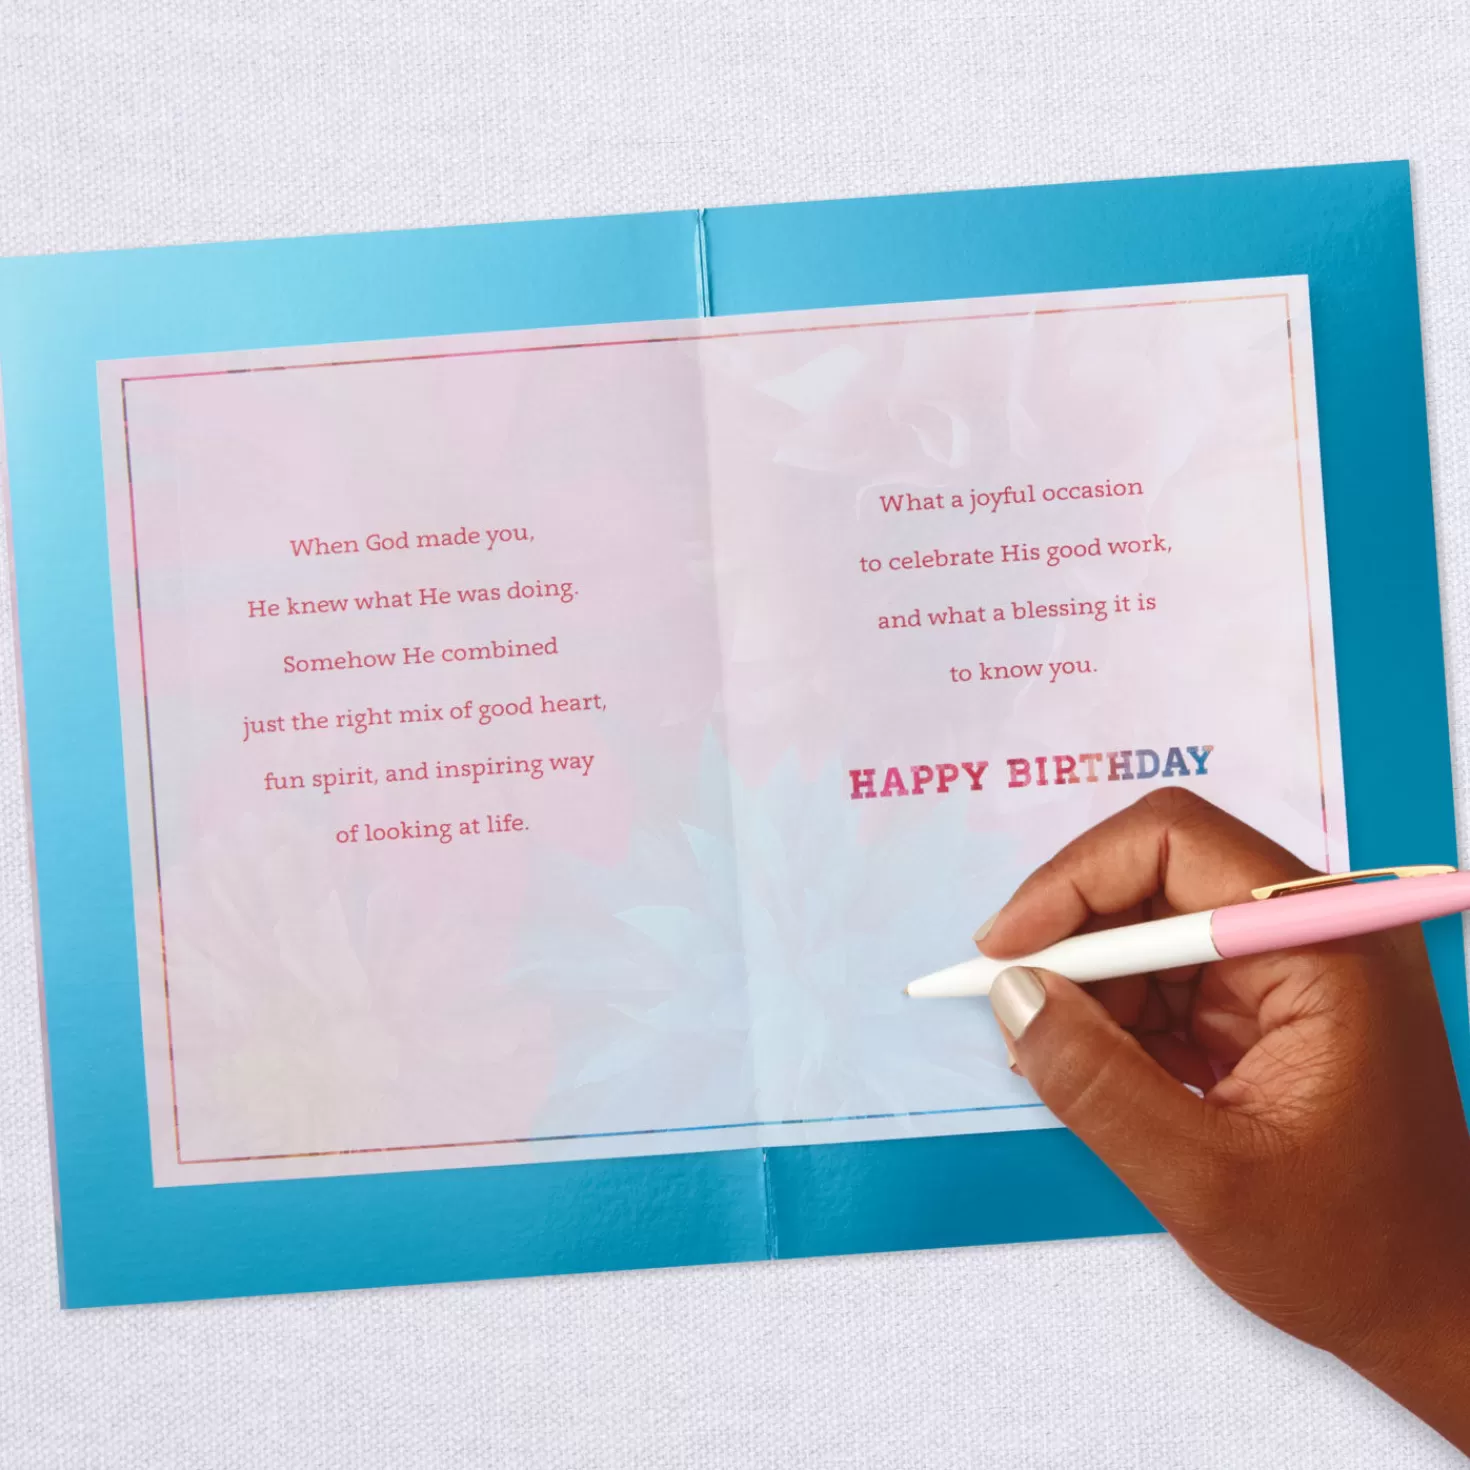 When God made you,
He knew what He was doing.
Somehow He combined
just the right mix of good heart,
fun spirit, and inspiring way
of looking at life.
What a joyful occasion
to celebrate His good work,
and what a blessing it is
to know you.
HAPPY BIRTHDAY